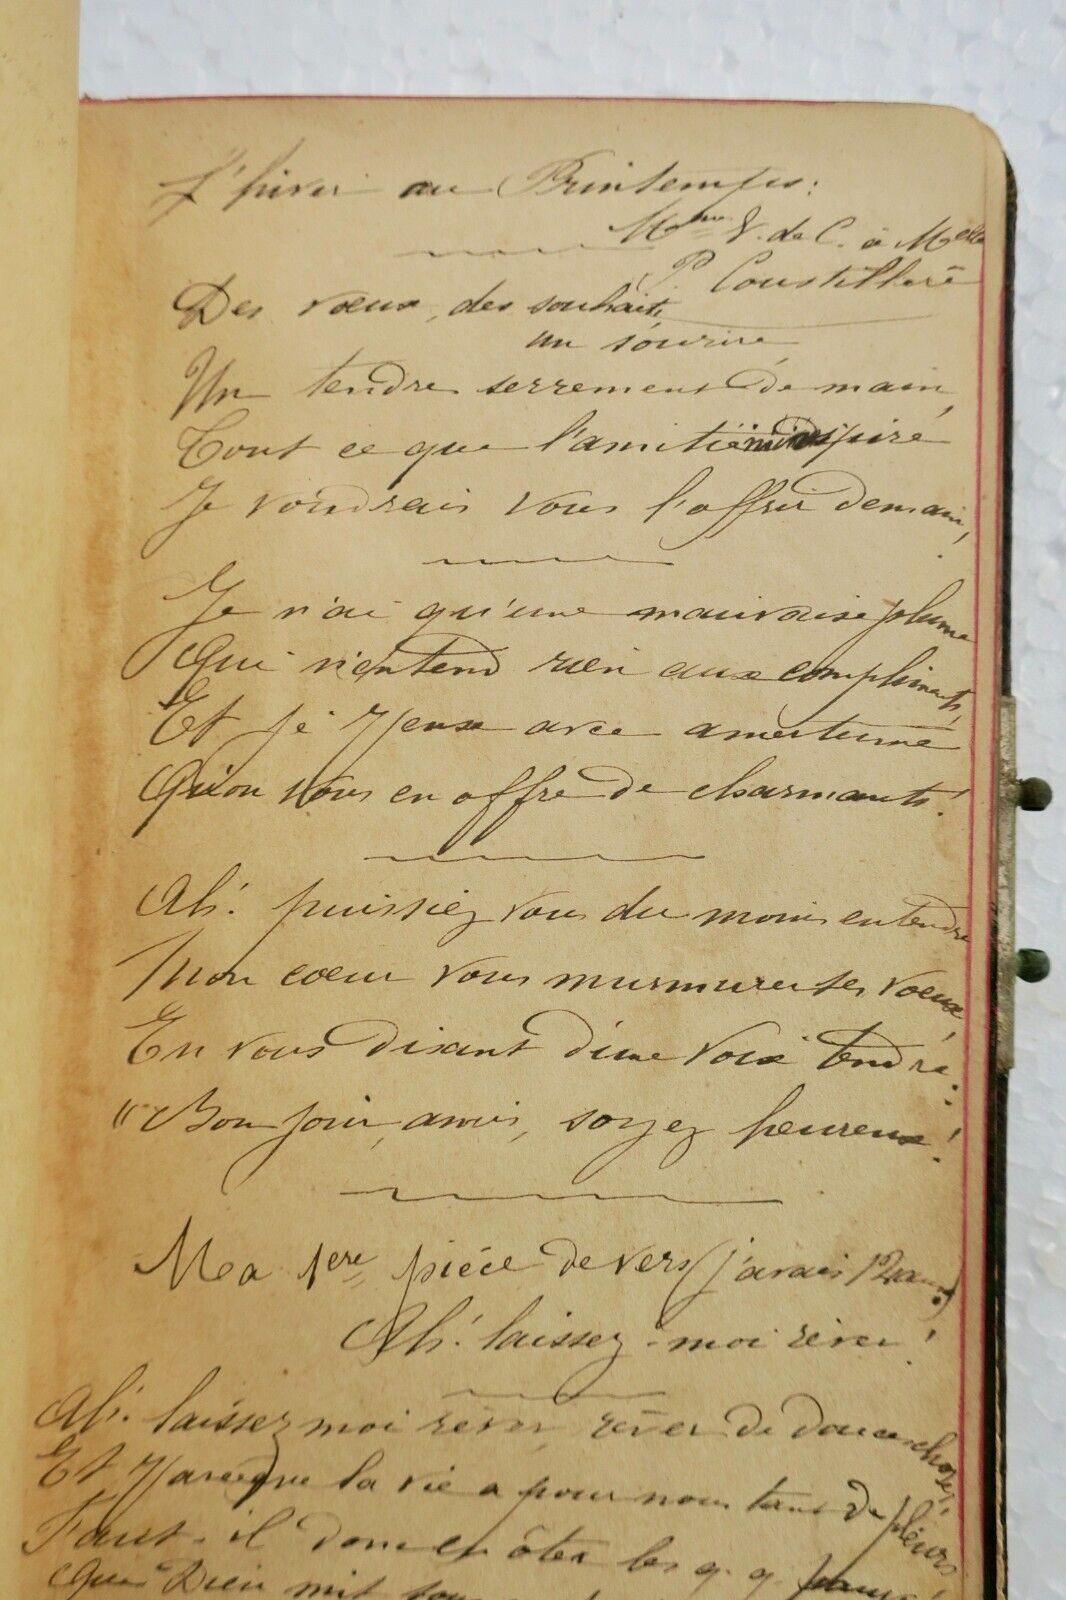 L'hiver au Printemps:
Mme V. de C. à Melle
P. Coustillère
Des vœux, des souhaits,
un sourire,
Un tendre serrement de main,
Tout ce que l'amitié inspire
Je voudrais vous l'offrir demain,
Je n'ai qu'une mauvaise plume
Qui n'entend rien aux compliments,
Et je pense avec amertume
Qu'on vous en offre de charmants!
Ah! puissiez vous du moins entendre
Mon cœur vous murmurer ses vœux,
En vous disant d'une voix tendre:
"Bonjour, amis, soyez heureux!
Ma 1ere pièce de vers (j'avais 12 ans)
Ah! laissez-moi rêver!
Ah! laissez moi rêver, rêver de douces choses,
Et parceque la vie a pour nous tant de pleurs
Faut-il donc en ôter les q.q.
Que Dieu mit sous